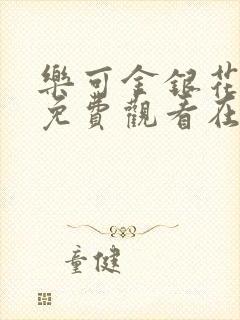 樂可金銀花
免費觀看在
童健